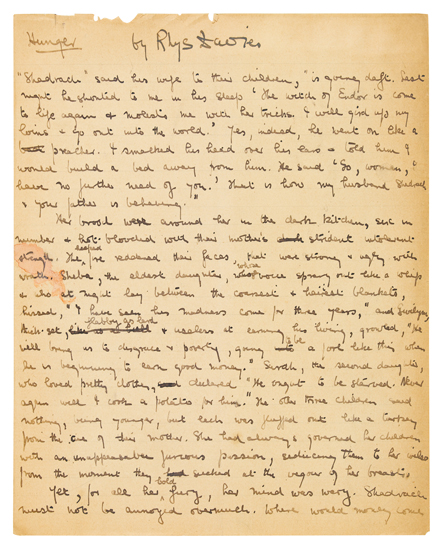 Hunger
by Rhys Davies
"Shadrach" said his wife to their children, "is going daft. Last
night he shouted to me in his sleep 'The witch of Endor is come
to life again & molests me with her tricks. I will gird up my
loins & go out into the world.' Yes, indeed, he went on like a
preacher. I smacked his head over his ears & told him I
would build a bed away from him. He said 'Go, woman, I
have no further need of you.' That is how my husband Shadrach
& your father is behaving."
Her brood were around her in the dark kitchen, six in
number & hot-blooded with their mother's strident intolerant
strength. The fire reddened their faces, that was strong & ugly with
wrath. Sheba, the eldest daughter, whose voice sprang out like a whip
& who at night lay between the coarsest & hairiest blankets,
hissed, "I have seen his madness come for three years," and
thick-set, flabby as lard & useless at earning his living, growled, "He
will bring us to disgrace & poverty, going to be a fool like this when
he is beginning to earn good money." Sarah, the second daughter,
who loved pretty clothes, declared "He ought to be starved. Never
again will I cook a potato for him." The other three children said
nothing, being younger, but each was fluffed out like a turkey
from the ire of their mother. She had always governed her children
with an unappeasable furious passion, seducing them to her
from the moment they sucked at the vigour of her breasts.
Yet, for all her bold fury, her mind was wary. Shadrach
must not be annoyed overmuch. Where would money come